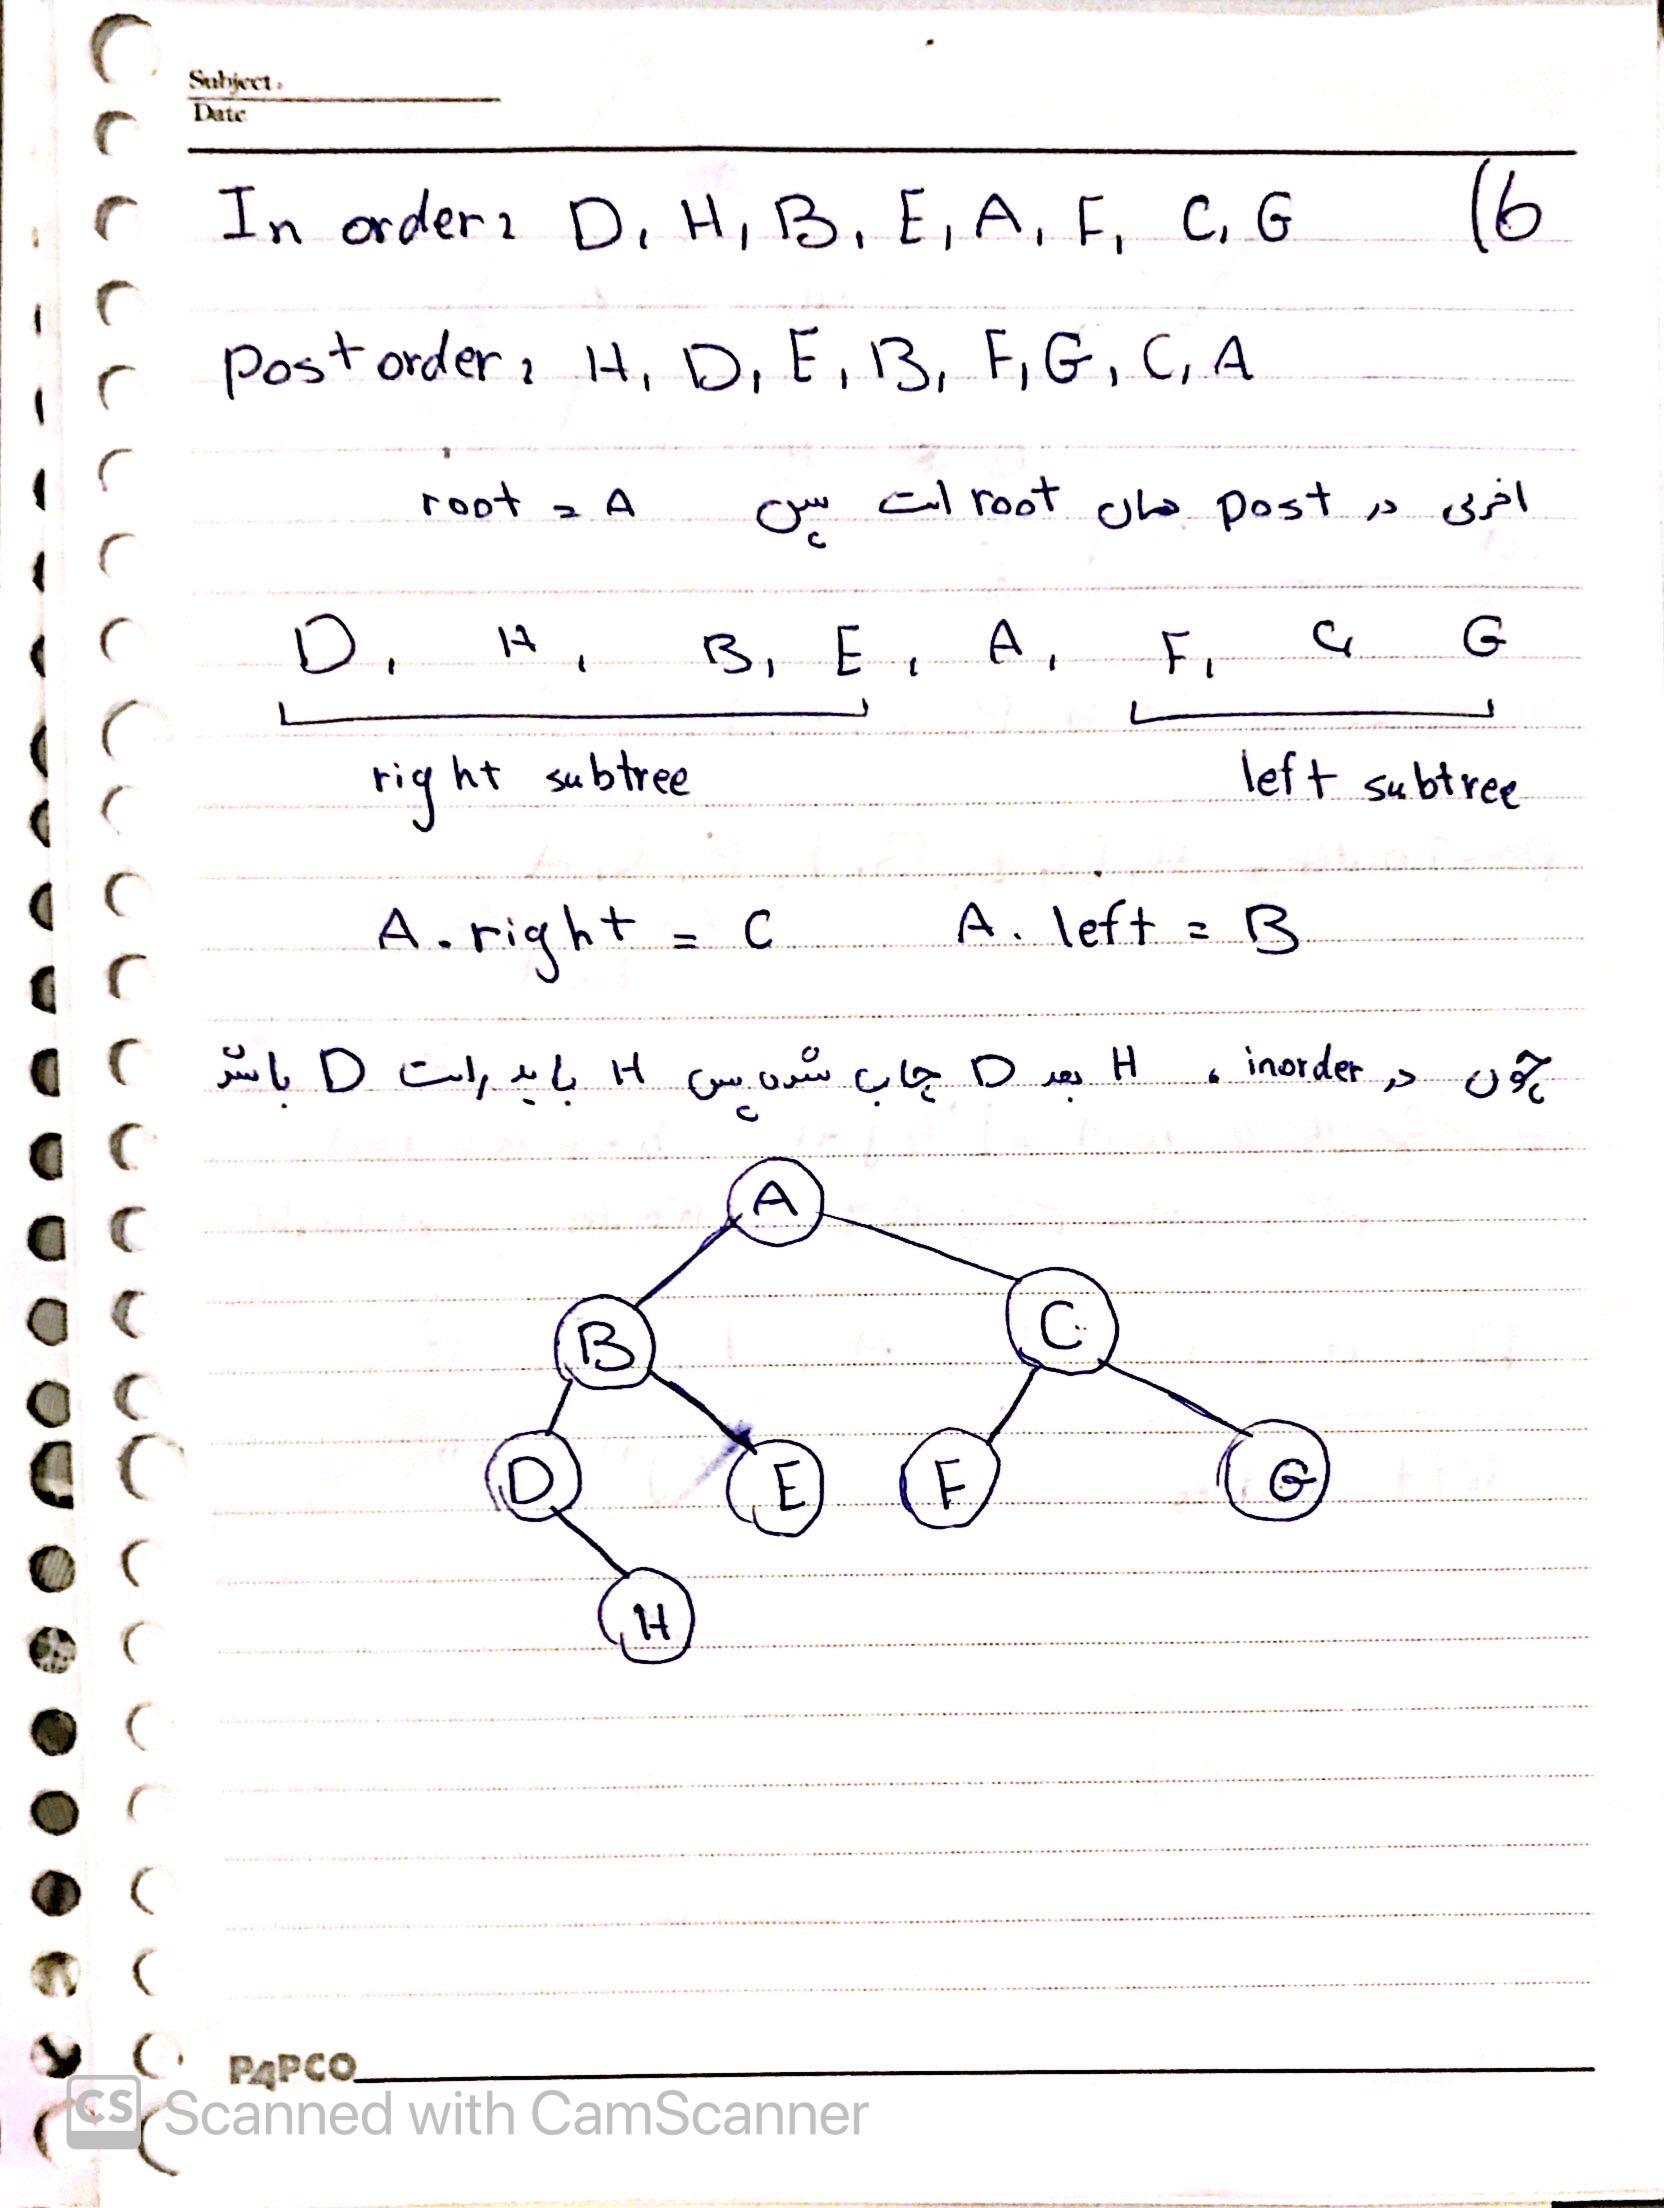 Subject.
Date
In order: D, H, B, E, A, F, C, G (6
post order: H, D, E, B, F, G, C, A
اخری در post همان root است پس root = A
D, H, B, E, A, F, C, G
right subtree left subtree
A. right = C A. left = B
چون در inorder، H بعد D چاپ شده پس H باید راست D باشد
A
B C
D E F G
H
PAPCO
CS Scanned with CamScanner